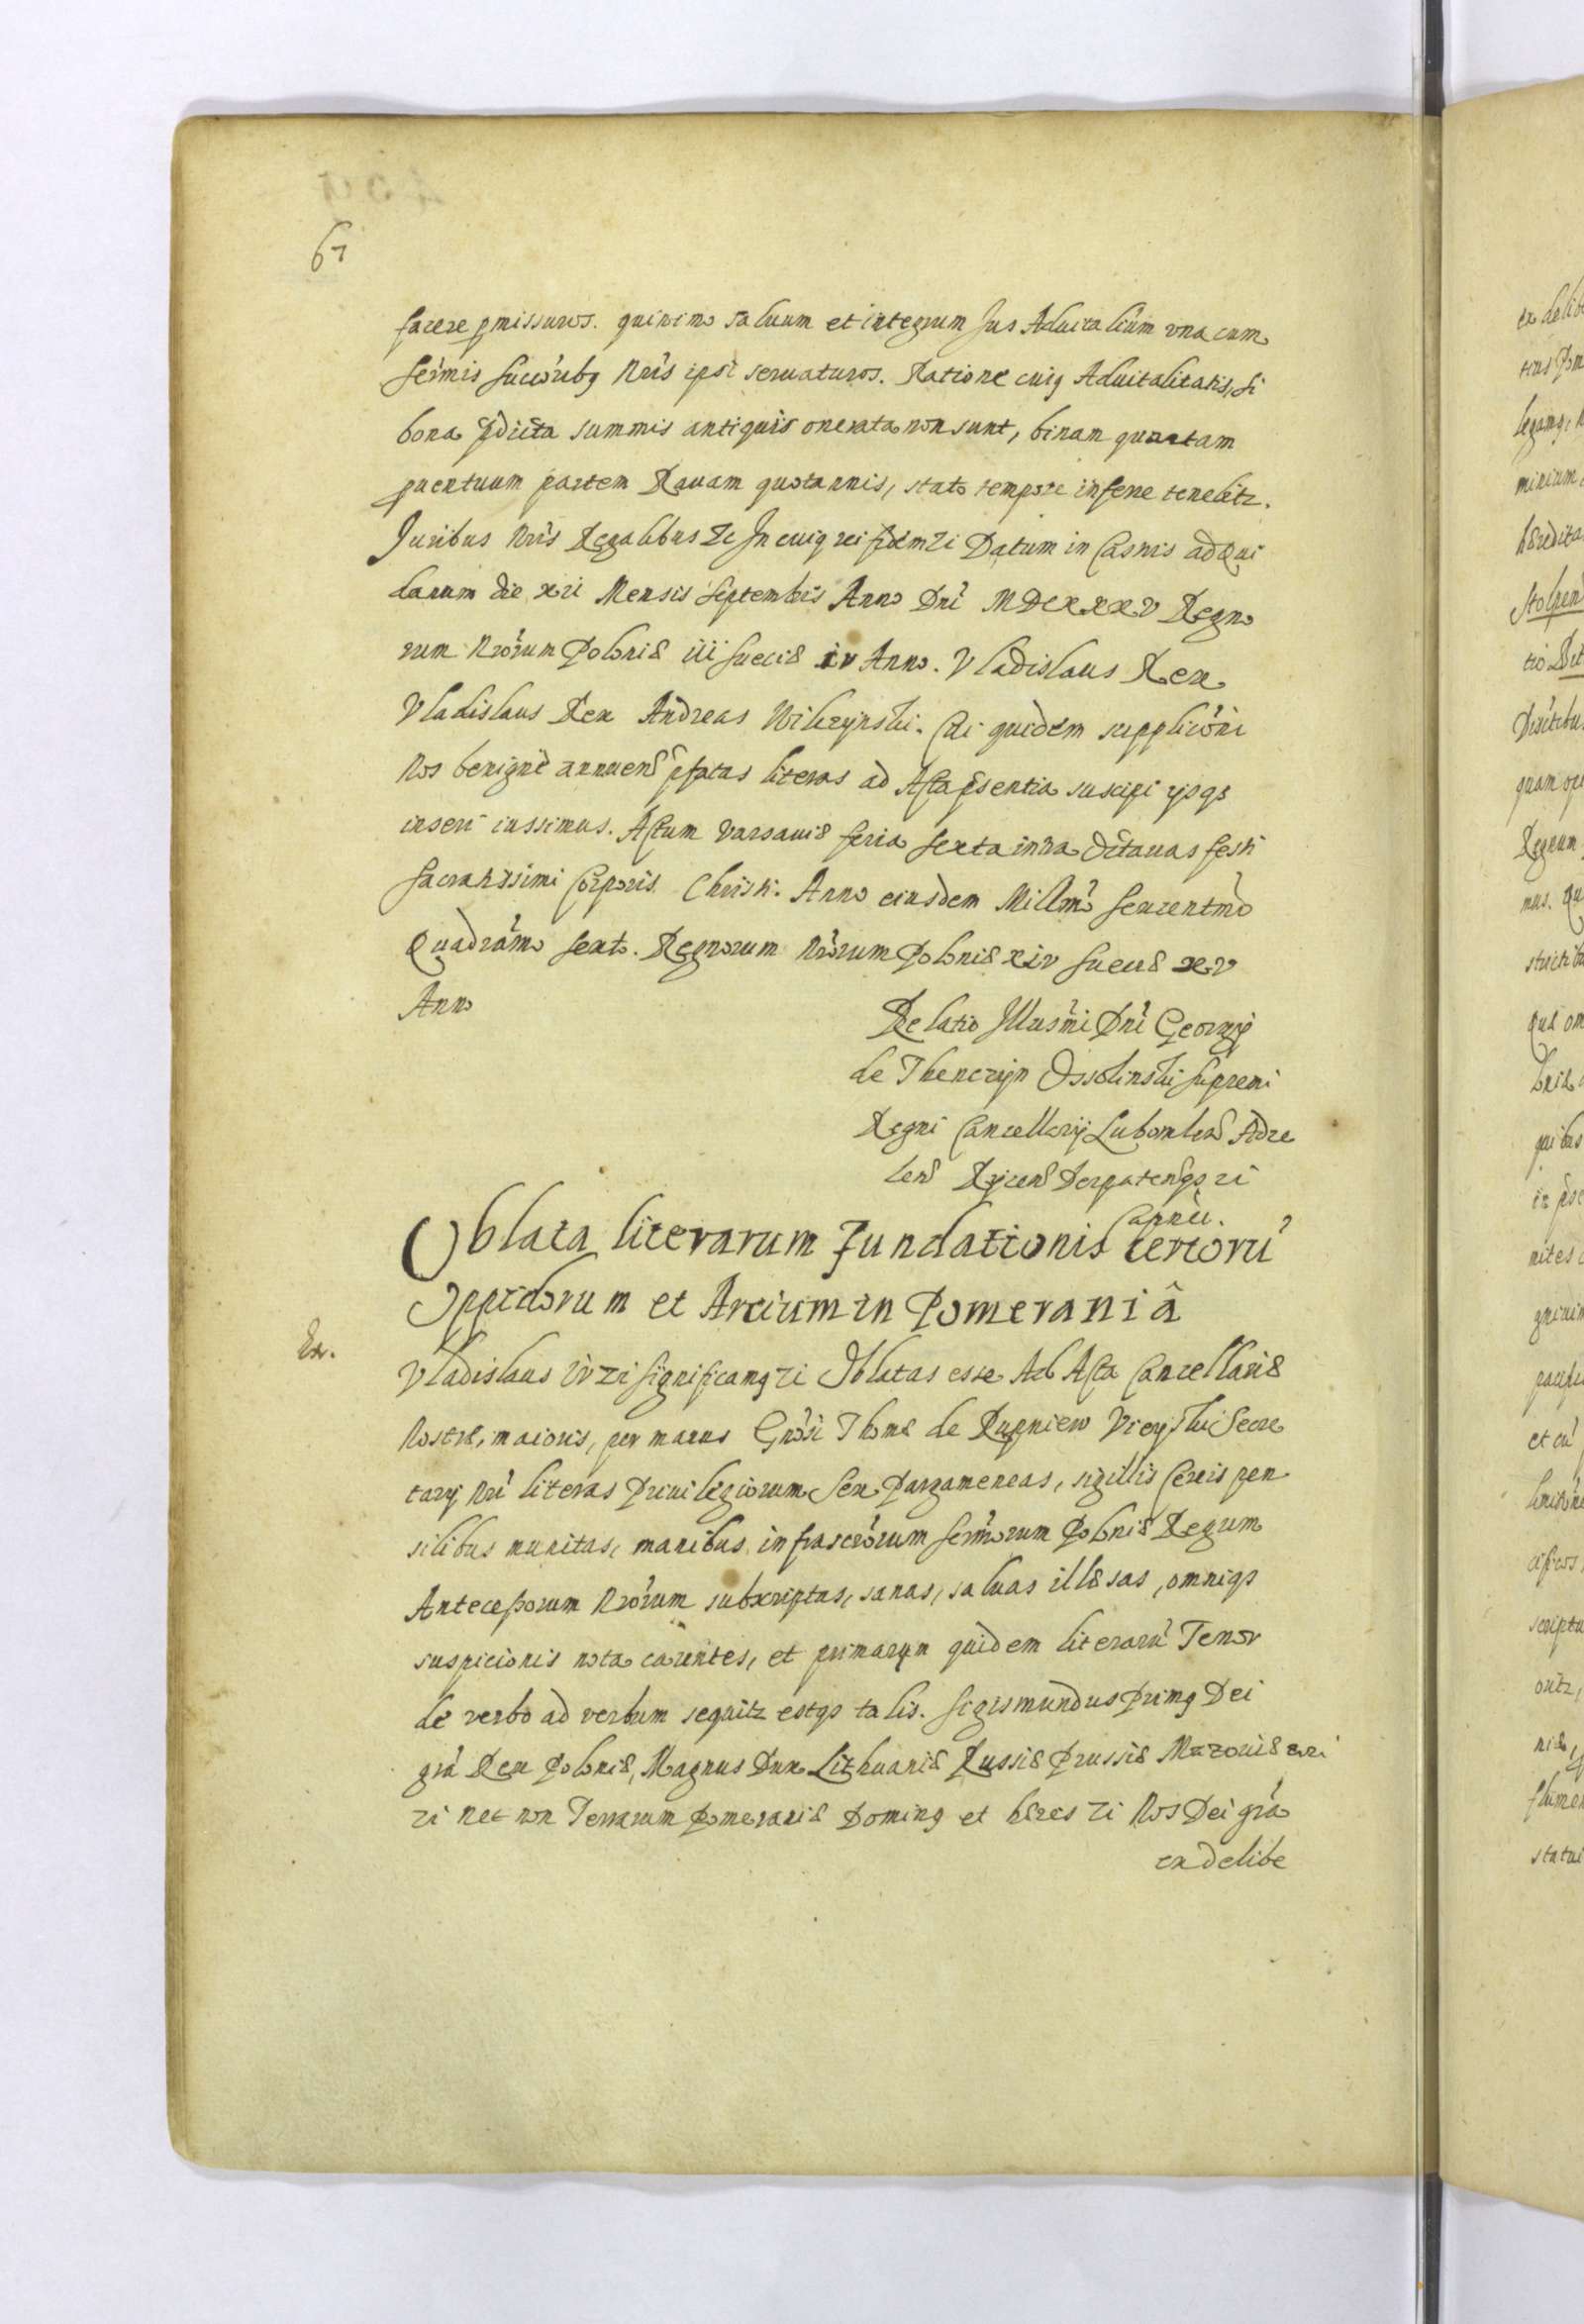 67
facere pmissuros. quinimo saluum et integrum Jus Aduitalium vna cum
Sermis Succorib9 Nris ipsi seruaturos. Ratione cui9 Aduitalitatis, si
bona pdicta summis antiquis onerata non sunt, binam quartam
puentuum partem Rauam quotannis, stato tempore inferre tenebitr.
Juribus Nris Regalibus &c In cui9 rei fidem &c Datum in Castris ad Qui
danum die xii Mensis Septembris Anno Dni MDCXXXV Regno
rum Nrorum Poloniæ iii Sueciæ iv Anno. Vladislaus Rex
Vladislaus Rex Andreas Wilczynski. Cui quidem supplicõni
Nos benignè annuen pfatas literas ad Acta psentia suscipi ijsq3
inseri iussimus. Actum Varsauiæ feria sexta infra Octauas festi
Sacratissimi Corporis Christi. Anno eiusdem Millmo Sexcentmo
Quadragmo sexto. Regnorum Nrorum Poloniæ xiv Sueciæ xv
Anno
Relatio Illusmi Dni Georgij
de Thenczyn Ossolinski Supremi
Regni Cancellarij Lubomlen Adze
len Rycen Derpatenq3 &c
Capnei.
Oblata literarum Fundationis certorũ
Oppidorum et Arcium in Pomeraniâ
Ex.
Vladislaus iv &c Significam9 &c Oblatas esse Ad Acta Cancellariæ
Nostræ, maioris, per manus Gnosi Thomæ de Rupniew Vieyski Secre
tarij Nri literas Priuilegiorum Seu Pargameneas, sigillis Cereis pen
silibus munitas, manibus infrascrorum Sermorum Poloniæ Regum
Antecessorum Nrorum subscriptas, sanas, saluas illæsas, omniq3
suspicionis nota carentes, et primarum quidem literarũ Tenor
de verbo ad verbum sequitr estq3 talis. Sigismundus Prim9 Dei
grã Rex Poloniæ, Magnus Dux Lithuaniæ Russiæ Prussiæ Mazouiæ &c
&c nec non Terrarum Pomeraniæ Domin9 et hæres &c Nos Dei grã
ex delibe